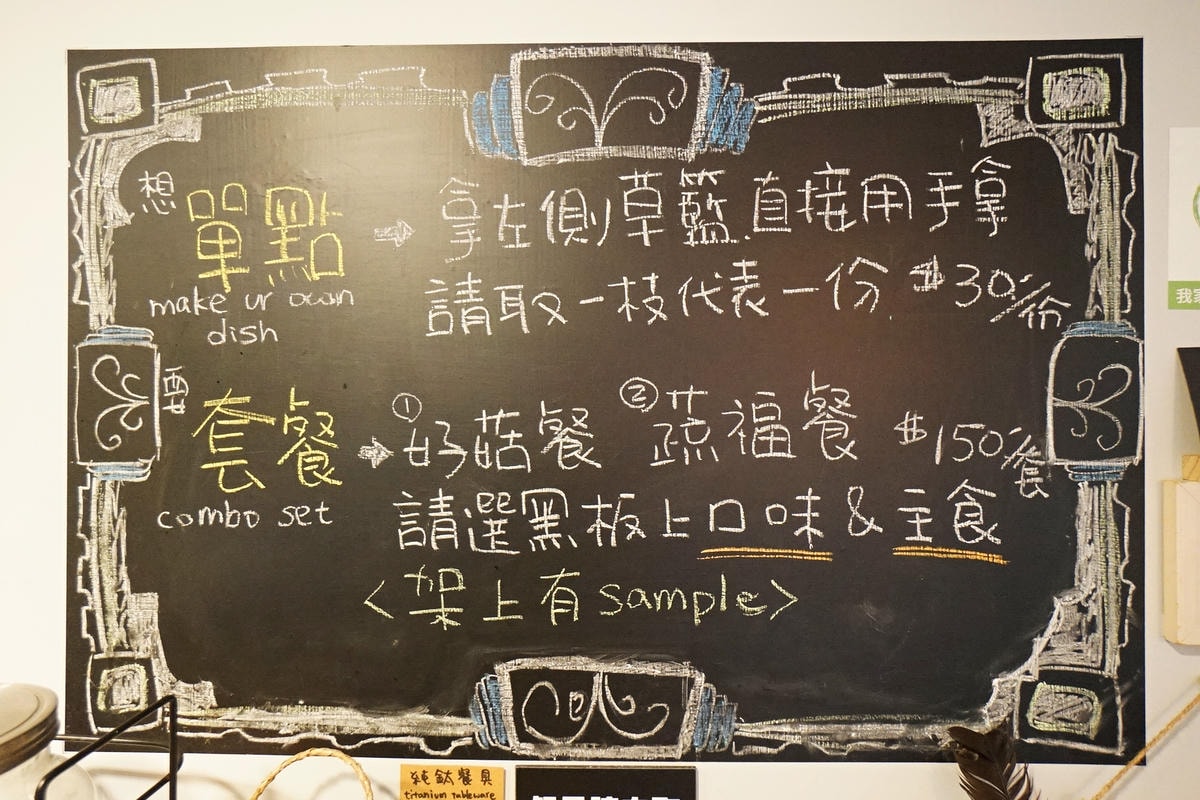 想 單點 → 拿左側草籃,直接用手拿
make ur own
dish
請取一枝代表一份. $30/份
要 套餐 → ①好菇餐 ②蔬福餐 $150/套
combo set
請選黑板上口味 & 主食
<架上有sample>
我家
純鈦餐具
titanium tableware